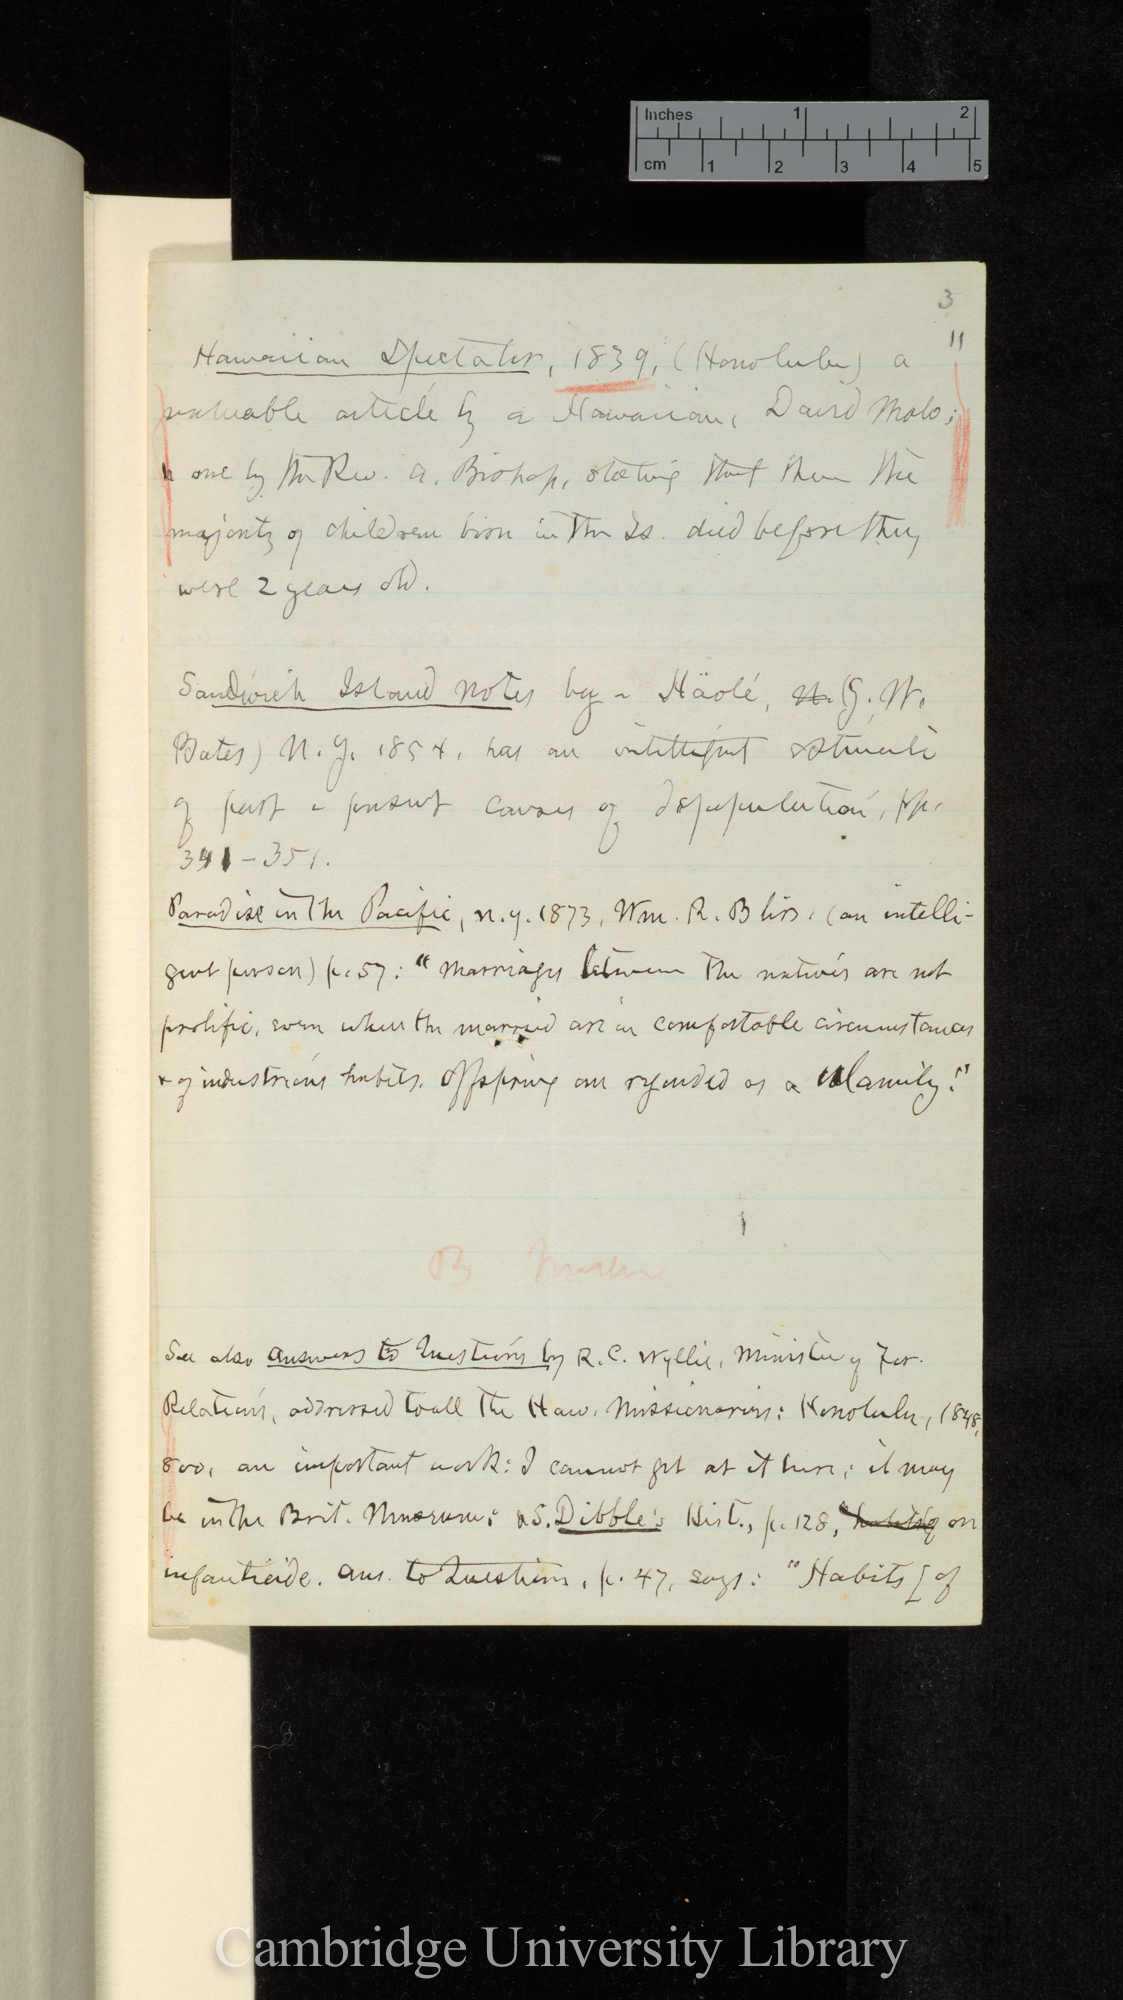 Inches 1 2
cm 1 2 3 4 5
3
11
Hawaiian Spectator, 1839, (Honolulu) a
valuable article by a Hawaiian, David Malo;
& one by the Rev. A. Bishop, stating that then the
majority of children born in the Is. died before they
were 2 years old.
Sandwich Island Notes by a Häolé, N. (G. W.
Bates) N.Y. 1854, has an intelligent estimate
of past & present causes of depopulation, pp.
341-351.
Paradise in the Pacific, N.Y. 1873, Wm. R. Bliss, (an intelli-
gent person) p. 57: "Marriages between the natives are not
prolific, even when the married are in comfortable circumstances
& of industrious habits. Offspring are regarded as a calamity."
B
See also Answers to Questions by R. C. Wyllie, Minister of For.
Relations, addressed to all the Haw. Missionaries: Honolulu, 1848,
8vo, an important work: I cannot get at it here; it may
be in the Brit. Museum; & S. Dibble's Hist., p. 128, on
infanticide. Ans. to Questions, p. 47, says: "Habits [of
Cambridge University Library